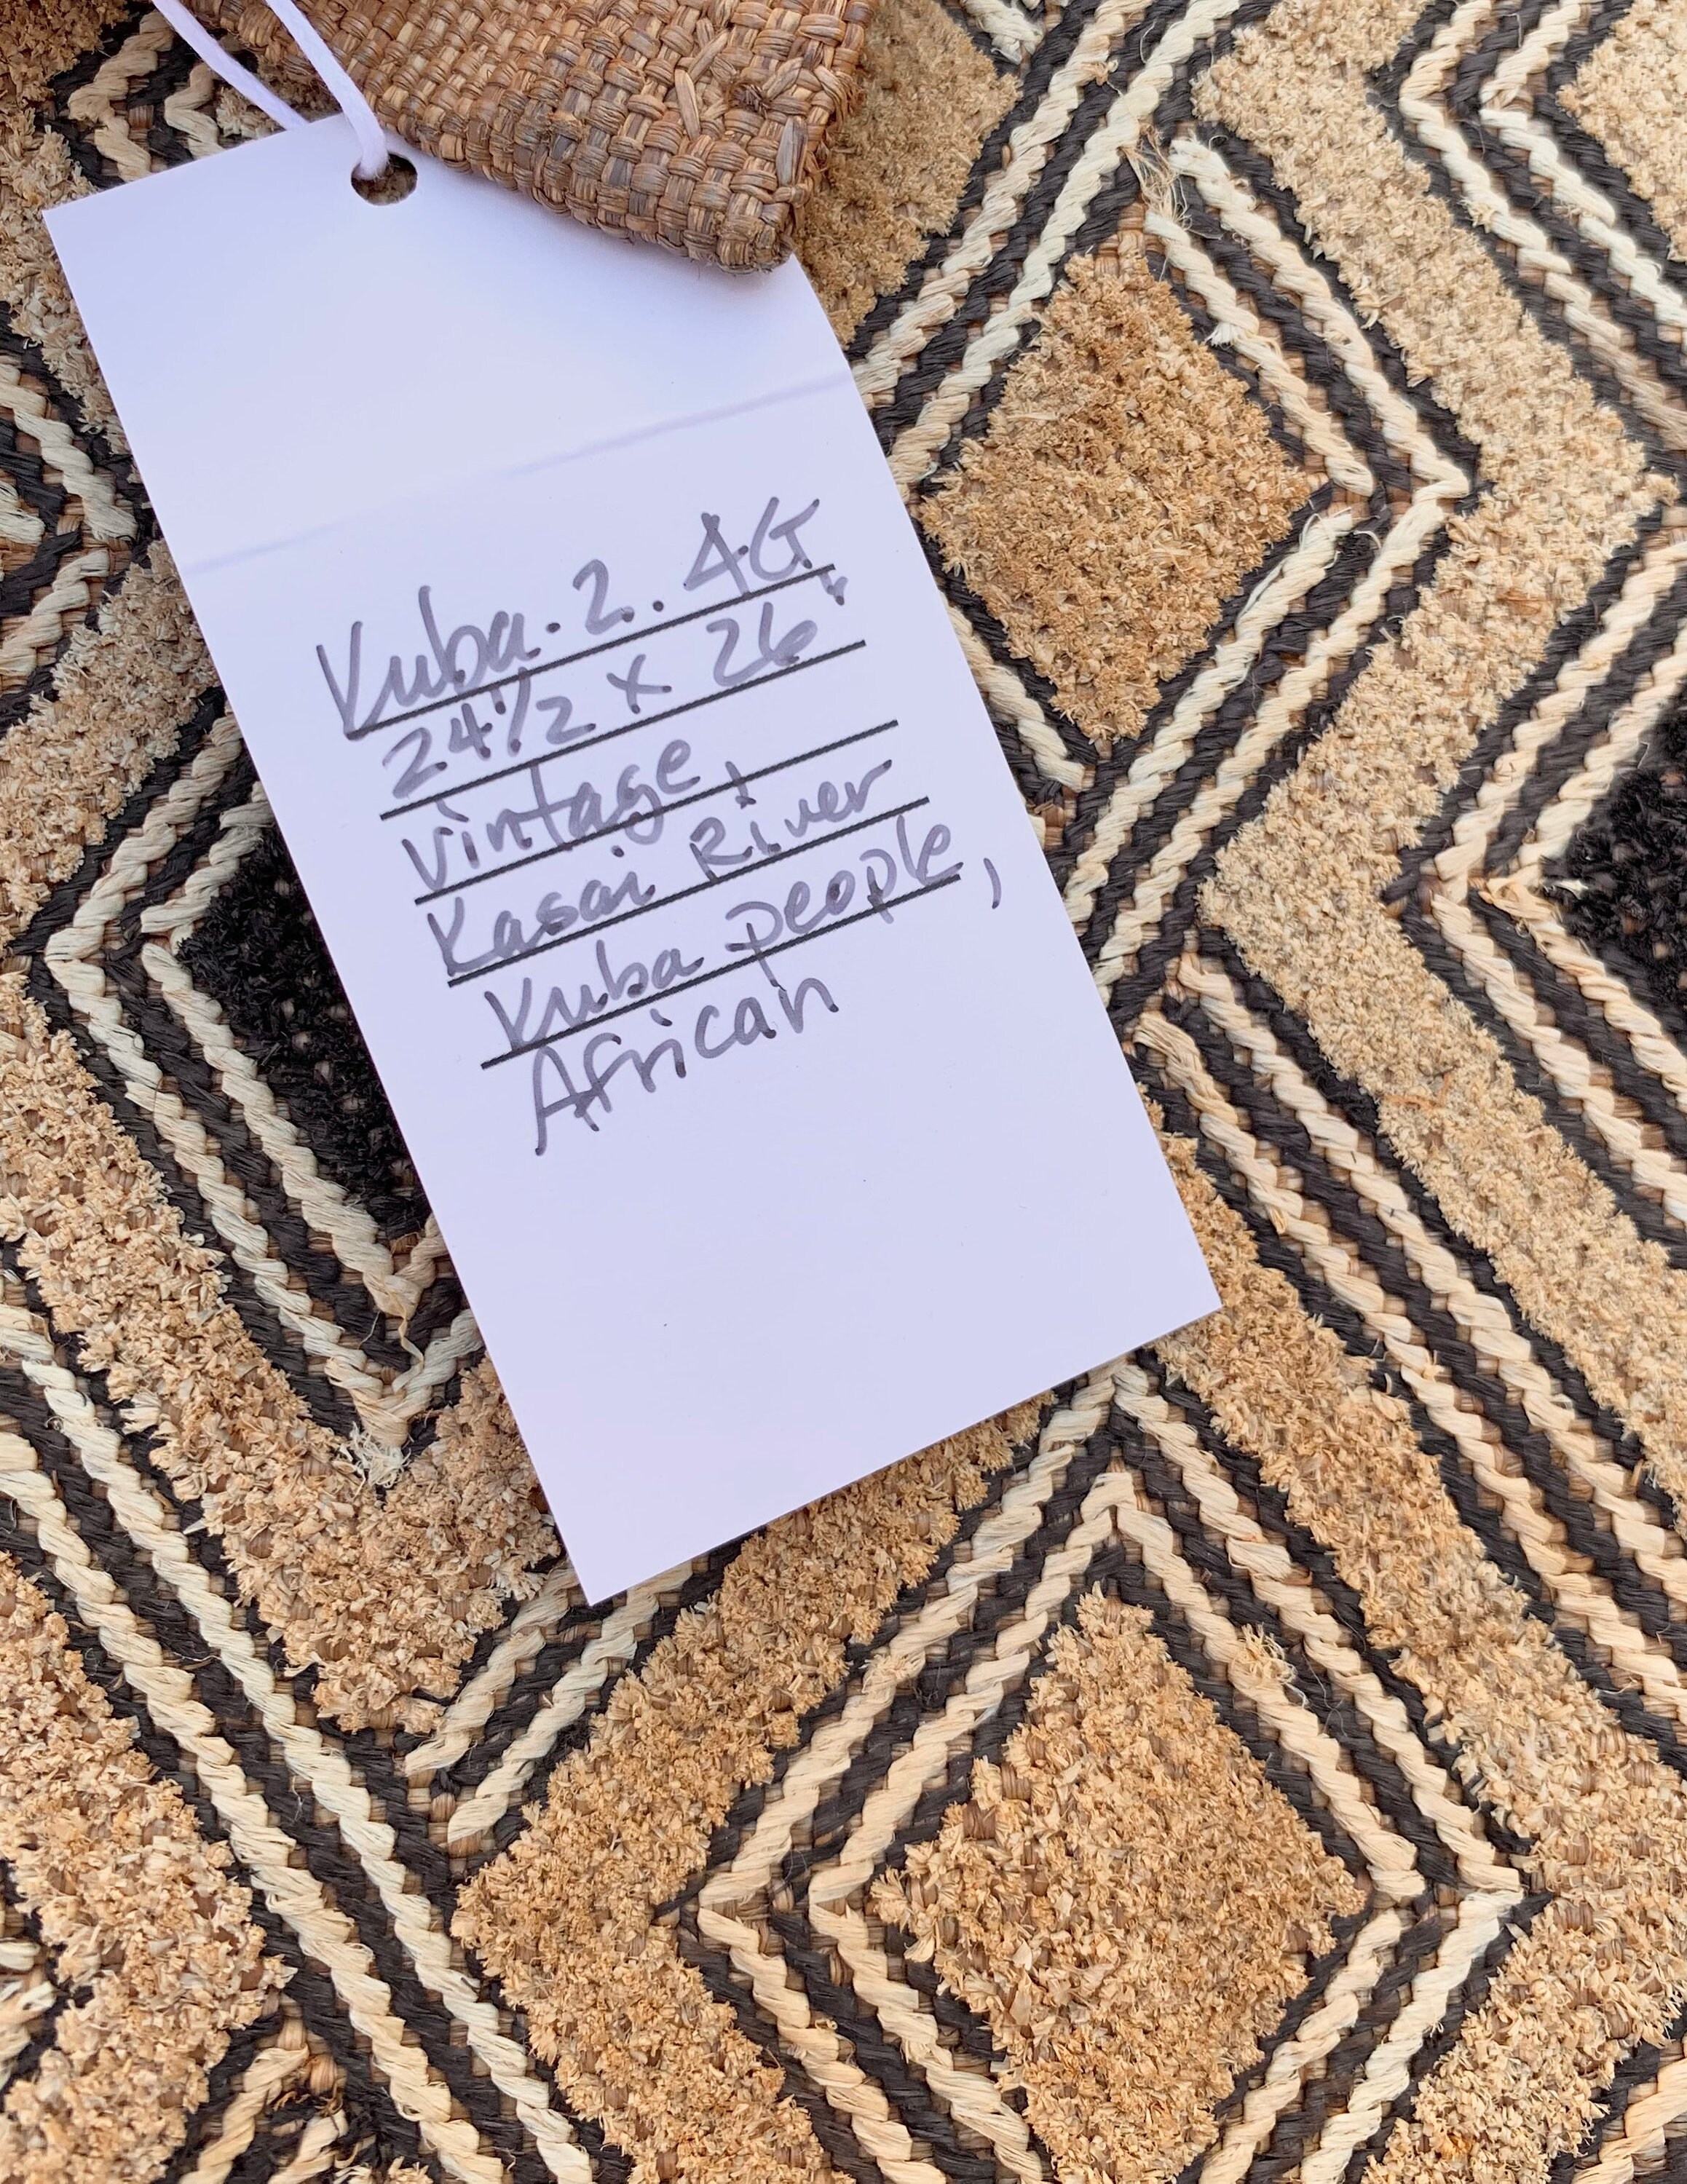 Kuba. 2. 4G
24 1/2 x 26"
vintage,
Kasai River
Kuba people,
African